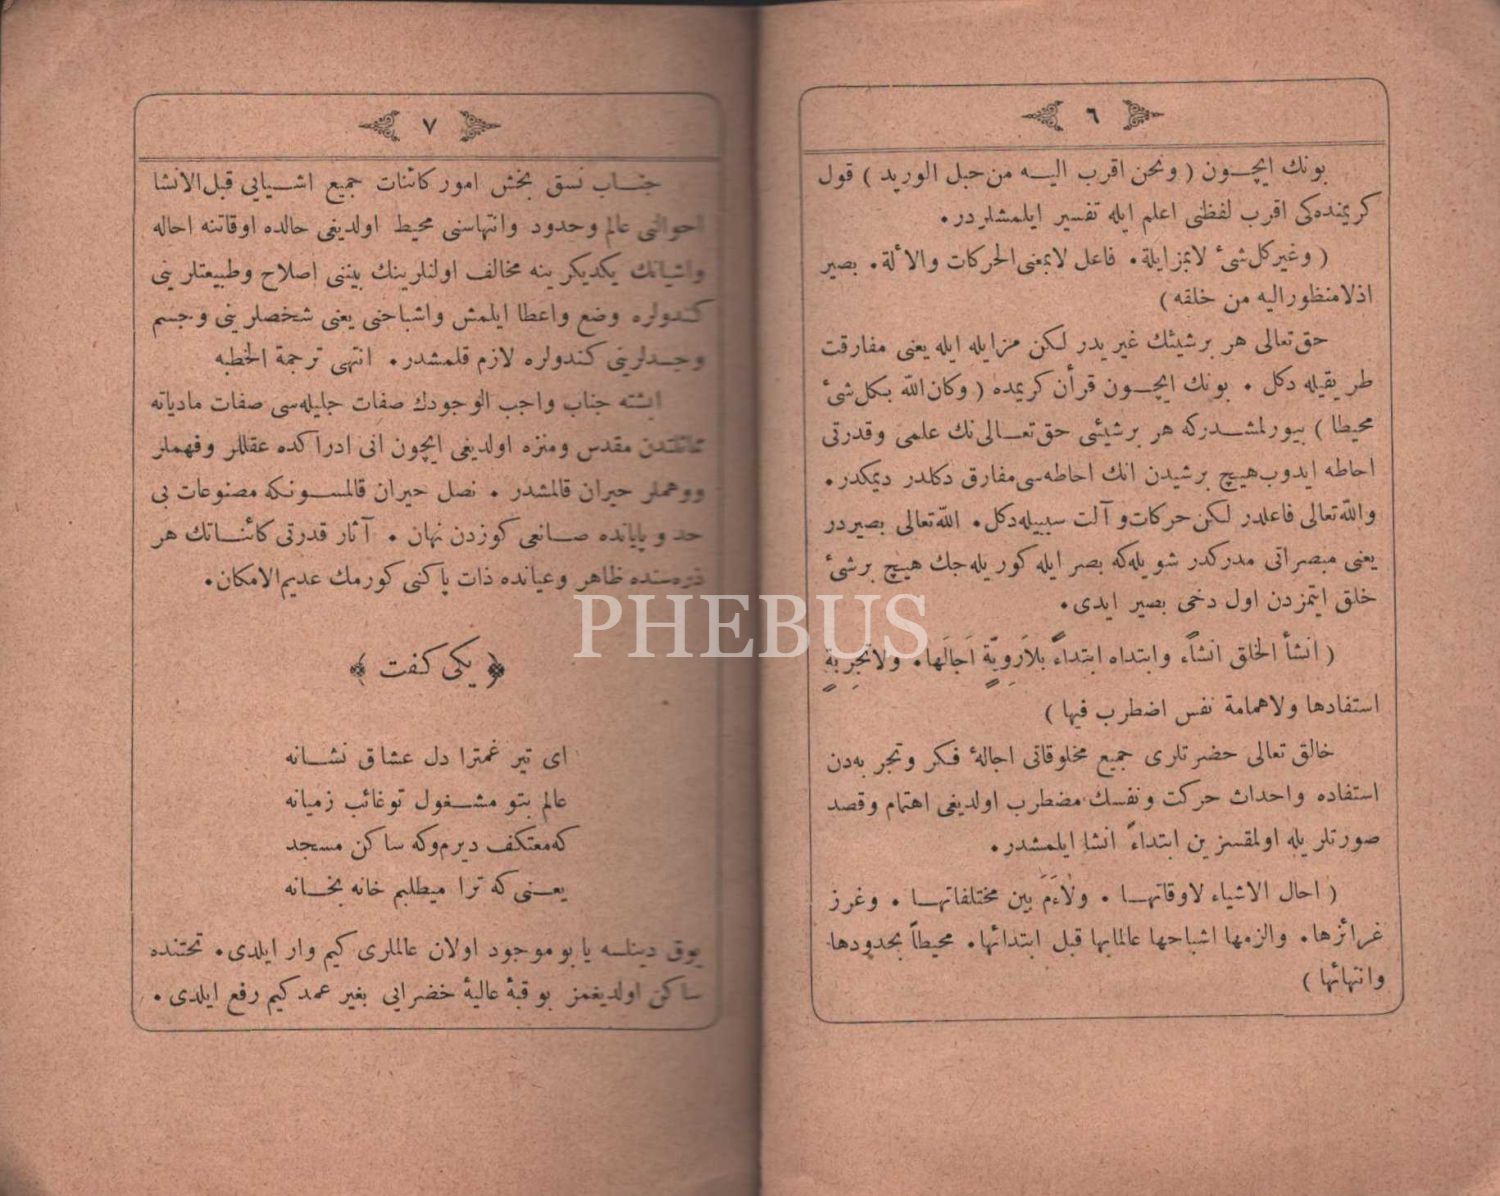 ٦
بونك ايچـــون ( ونحن اقرب اليـــه من حبل الوريد ) قول
كريمنده‌كى اقرب لفظنى اعلم ايله تفسير ايلمشلردر.
( وغير كل شئ لابمزايلة. فاعل لابمعنى الحركات والألة. بصير
اذلامنظور اليه من خلقه )
حق تعالى هر برشيئك غيريدر لكن مزايله ايله يعنى مفارقت
طريقيله دكل. بونك ايچـــون قرأن كريمده ( وكان الله بكل شئ
محيطا ) بيورلمشـــدركه هر برشيئى حق تعـــالى نك علمى وقدرتى
احاطه ايدوب هيچ برشيدن انك احاطه‌سى مفارق دكلدر ديمكدر.
والله تعالى فاعلدر لكن حركات و آلت سببيله دكل. الله تعالى بصيردر
يعنى مبصراتى مدركدر شويله‌كه بصر ايله كوريله‌جك هيچ برشئ
خلق ايتمزدن اول دخى بصير ايدى.
( انشأ الخلق انشاءً وابتداه ابتداءً بلارويّةٍ اجالها. ولاتجربةٍ
استفادها ولاهمامة نفس اضطرب فيها )
خالق تعالى حضرتلرى جميع مخلوقاتى اجالۀ فكر وتجربه‌دن
استفاده واحداث حركت ونفسك مضطرب اولديغى اهتمام وقصد
صورتلريله اولمقسزين ابتداءً انشا ايلمشدر.
( احال الاشياء لاوقاتهـــا. ولاءَمَ بين مختلفاتهـــا. وغرز
غرائزها. والزمها اشباحها عالمابها قبل ابتدائها. محيطاً بحدودها
وانتهائها )
٧
جنـــاب نسق بخش امور كائنات جميع اشـــيايى قبل الانشا
احوالنى عالم وحدود وانتهاسنى محيط اولديغى حالده اوقاتنه احاله
واشيانك يكديكرينه مخالف اولنلرينك بيننى اصلاح وطبيعتلرينى
كندولره وضع واعطا ايلمش واشباحنى يعنى شخصلرينى وجسم
وجسدلرينى كندولره لازم قلمشدر. انتهى ترجمة الخطبه
ايشته جناب واجب الوجودك صفات جليله‌سى صفات مادياته
مقدس ومنزه اولديغى ايچون انى ادراكده عقللر وفهملر
ووهملر حيران قالمشدر. نصل حيران قالمسونكه مصنوعات بى
حد و پاياننده صـــانعى كوزدن نهان. آثار قدرتى كائنـــاتك هر
ذره‌سنده ظاهر وعيانده ذات پاكنى كورمك عديم الامكان.
﴿ يكى كفت ﴾
اى تير غمترا دل عشاق نشـــانه
عالم بتو مشـــغول تو غائب زميانه
كه معتكف ديرم وكه ساكن مسجد
يعـــنى كه ترا ميطلبم خانه بخـــانه
يوق دينلسه يا بو موجود اولان عالملرى كيم وار ايلدى. تحتنده
ساكن اولديغمز بو قبۀ عاليۀ خضرايى بغير عمد كيم رفع ايلدى.
PHEBUS